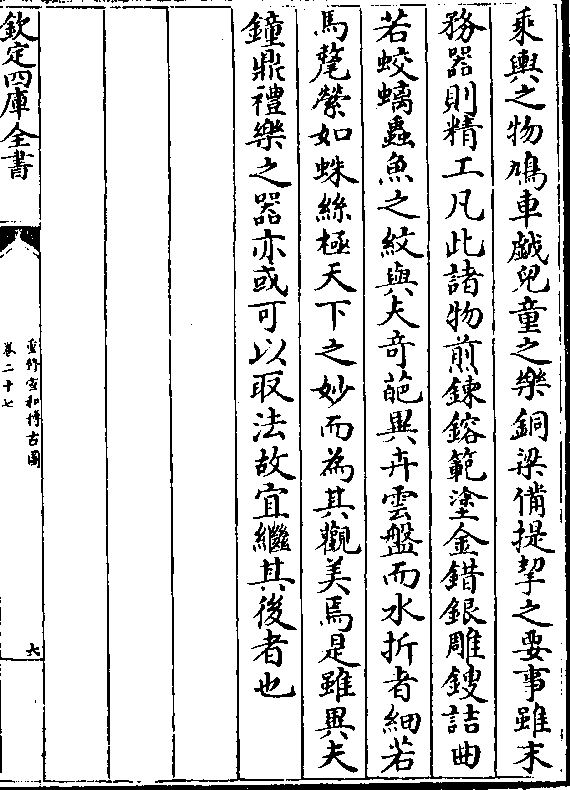 乘輿之物鳩車戲兒童之樂銅梁備提挈之要事雖末
務器則精工凡此諸物煎鍊鎔範塗金錯銀雕鎪詰曲
若蛟螭蟲魚之紋與夫奇葩異卉雲盤而水折者細若
馬氂縈如蛛絲極天下之妙而為其觀美焉是雖異夫
鐘鼎禮樂之器亦或可以取法故宜繼其後者也
欽定四庫全書
重修宣和博古圖
卷二十七
六